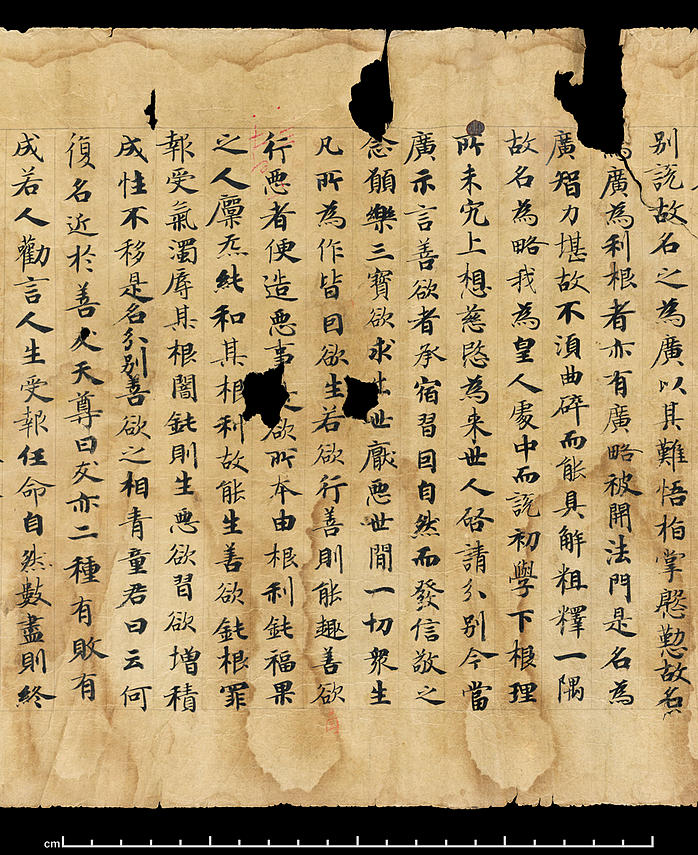 別說故名之為廣以其難悟指掌慇懃故名
為廣為利根者亦有廣略被開法門是名為
廣智力堪故不須曲碎而能具解粗釋一隅
故名為略我為皇人處中而說初學下根理
所未究上想慈愍為来世人啓請分別今當
廣示言善欲者承宿習因自然而發信敬之
念願樂三寶欲求出世厭惡世間一切衆生
凡所為作皆曰欲生若欲行善則能趣善欲
行惡者便造惡事欲所本由根利鈍福果
之人廪炁純和其根利故能生善欲鈍根罪
報受氣濁辱其根闇鈍則生惡欲習欲增積
成性不移是名分別善欲之相青童君曰云何
復名近於善友天尊曰友亦二種有敗有
成若人勸言人生受報任命自然數盡則終
cm